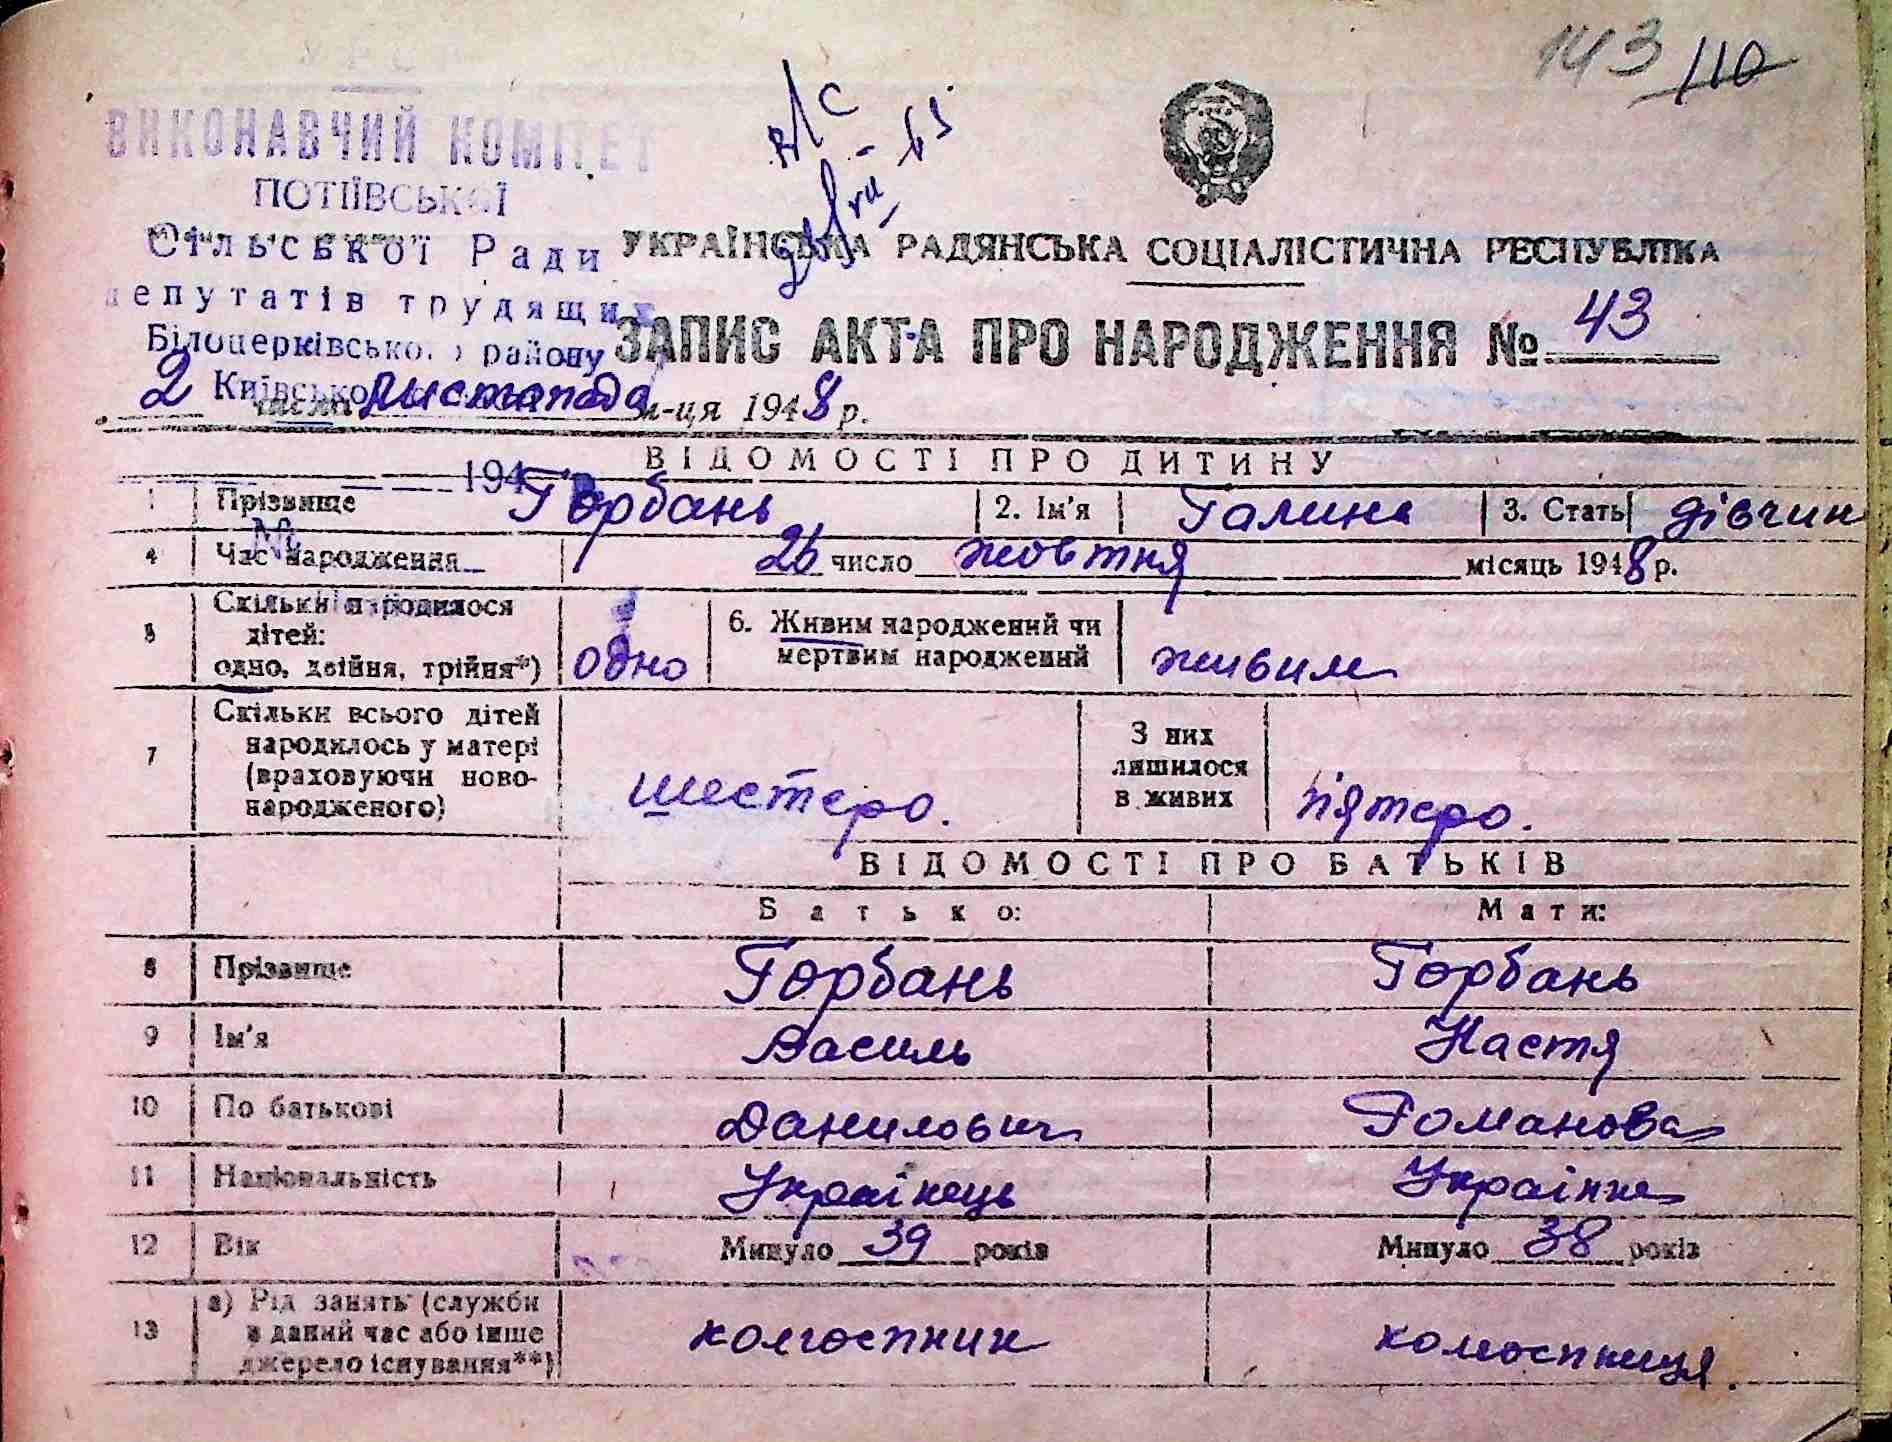 143 110
ВИКОНАВЧИЙ КОМІТЕТ
ПОТІЇВСЬКОЇ
Сільської Ради
депутатів трудящих
Білоцерківського району
УКРАЇНСЬКА РАДЯНСЬКА СОЦІАЛІСТИЧНА РЕСПУБЛІКА
ЗАПИС АКТА ПРО НАРОДЖЕННЯ № 43
2 числа листопада м-ця 1948 р.
194
ВІДОМОСТІ ПРО ДИТИНУ
1 Прізвище Горбань 2. Ім'я Галина 3. Стать дівчин
№
4 Час народження 26 число жовтня місяць 1948 р.
5 Скільки народилося
дітей:
одно, двійня, трійня*) одно
6. Живим народжений чи
мертвим народжений живим
7 Скільки всього дітей
народилось у матері
(враховуючи ново-
народженого) шестеро.
З них
лишилося
в живих п'ятеро.
ВІДОМОСТІ ПРО БАТЬКІВ
Батько: Мати:
8 Прізвище Горбань Горбань
9 Ім'я Василь Настя
10 По батькові Данилович Романова
11 Національність Українець Українка
12 Вік Минуло 39 років Минуло 38 років
13 а) Рід занять (служби
в даний час або інше
джерело існування**) колгоспник колгоспниця.